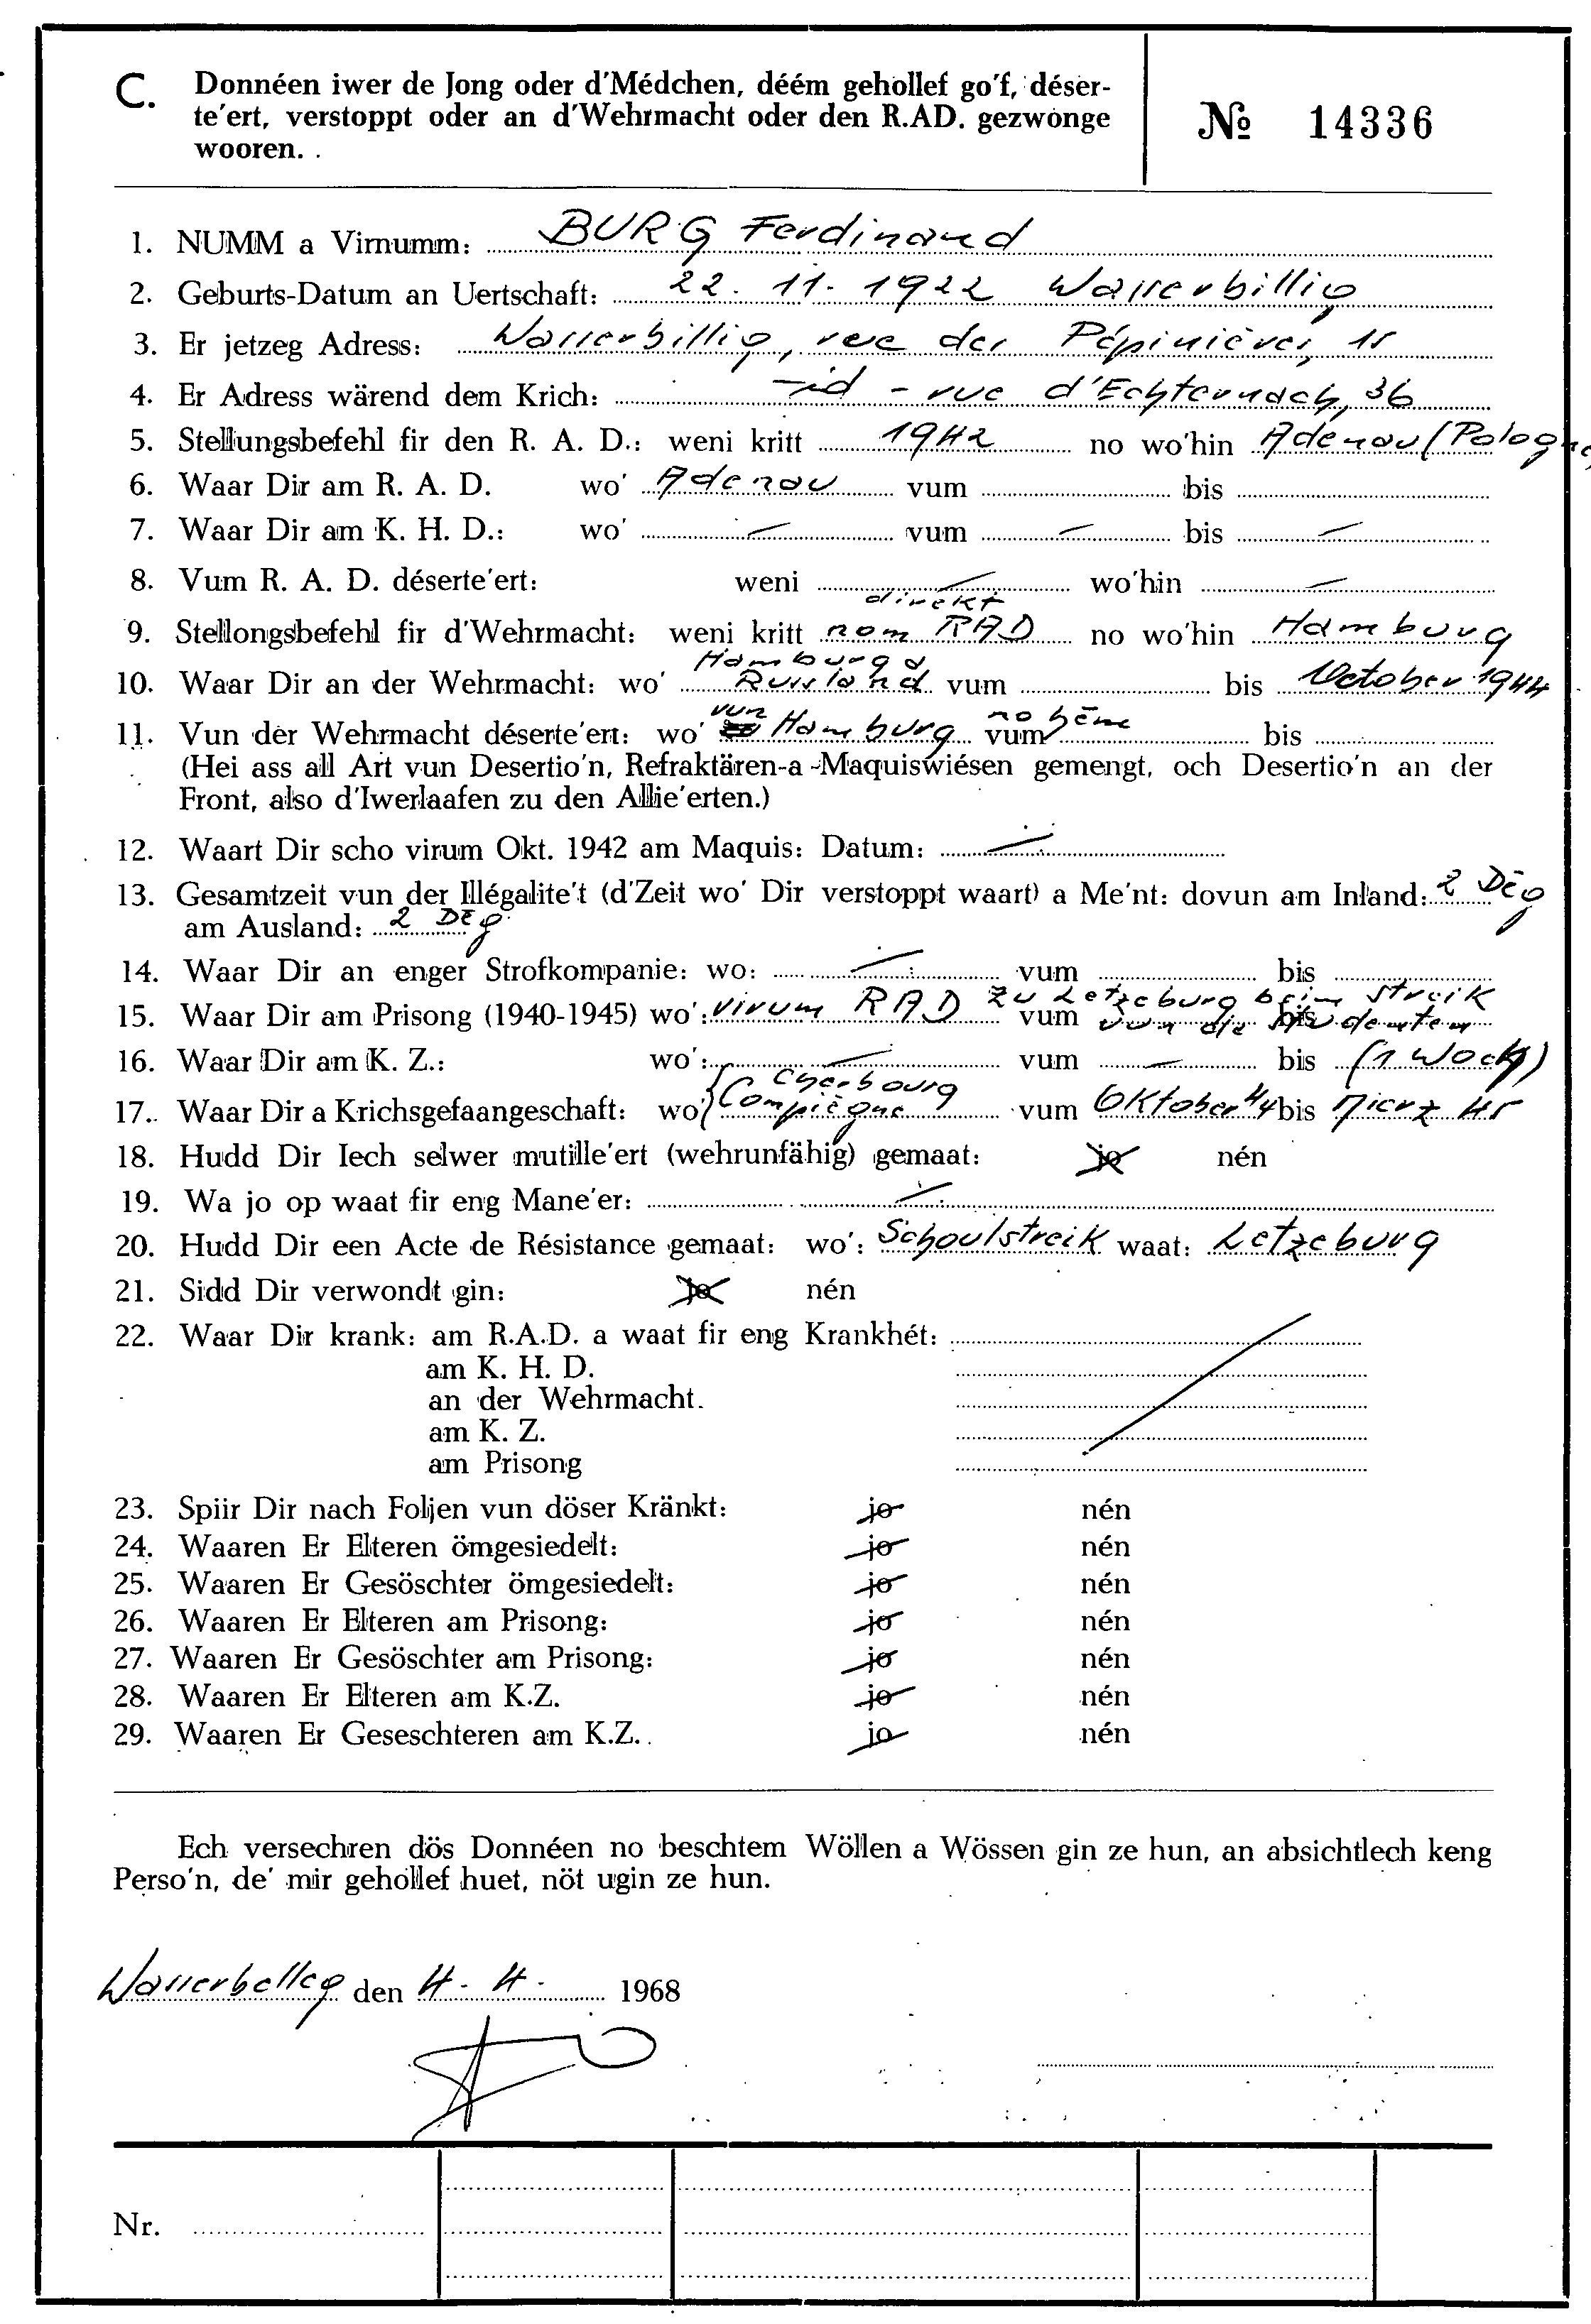 C. Donnéen iwer de Jong oder d'Médchen, déém gehollef go'f, déser-
te'ert, verstoppt oder an d'Wehrmacht oder den R.AD. gezwonge
wooren.
№ 14336
1. NUMM a Virnumm: BURG Ferdinand
2. Geburts-Datum an Uertschaft: 22. 11. 1922 Wasserbillig
3. Er jetzeg Adress: Wasserbillig, rue des Pépinières, 15
4. Er Adress wärend dem Krich: -id- rue d'Echternach, 36
5. Stellungsbefehl fir den R. A. D.: weni kritt 1942 no wo'hin Adenau (Pologne)
6. Waar Dir am R. A. D. wo' Adenau vum bis
7. Waar Dir am K. H. D.: wo' — vum — bis —
8. Vum R. A. D. déserte'ert: weni — wo'hin —
direkt
9. Stellongsbefehl fir d'Wehrmacht: weni kritt nom RAD no wo'hin Hamburg
Hamburg a
10. Waar Dir an der Wehrmacht: wo' Russland vum bis October 1944
11. Vun der Wehrmacht déserte'ert: wo' vun Hamburg vum no hém bis
(Hei ass all Art vun Desertio'n, Refraktären-a -Maquiswiésen gemengt, och Desertio'n an der
Front, also d'Iwerlaafen zu den Allie'erten.)
12. Waart Dir scho virum Okt. 1942 am Maquis: Datum: —
13. Gesamtzeit vun der Illégalite't (d'Zeit wo' Dir verstoppt waart) a Me'nt: dovun am Inland: 2 Dég
am Ausland: 2 Dég
14. Waar Dir an enger Strofkompanie: wo: — vum bis
zu Letzeburg beim Streik
15. Waar Dir am Prisong (1940-1945) wo': virum RAD vum vun de Studenten bis
16. Waar Dir am K. Z.: wo': — vum — bis (1 Woch)
Cherbourg
17. Waar Dir a Krichsgefaangeschaft: wo' Compiègne vum Oktober 44 bis Mierz 45
18. Hudd Dir Iech selwer mutille'ert (wehrunfähig) gemaat: jo nén
19. Wa jo op waat fir eng Mane'er: —
20. Hudd Dir een Acte de Résistance gemaat: wo': Schoulstreik waat: Letzeburg
21. Sidd Dir verwondt gin: jo nén
22. Waar Dir krank: am R.A.D. a waat fir eng Krankhét:
am K. H. D.
an der Wehrmacht.
am K. Z.
am Prisong
23. Spiir Dir nach Foljen vun döser Kränkt: jo nén
24. Waaren Er Elteren ömgesiedelt: jo nén
25. Waaren Er Gesöschter ömgesiedelt: jo nén
26. Waaren Er Elteren am Prisong: jo nén
27. Waaren Er Gesöschter am Prisong: jo nén
28. Waaren Er Elteren am K.Z. jo nén
29. Waaren Er Geseschteren am K.Z. jo nén
Ech versechren dös Donnéen no beschtem Wöllen a Wössen gin ze hun, an absichtlech keng
Perso'n, de' mir gehollef huet, nöt ugin ze hun.
Wasserbelleg den 4. 4. 1968
Nr.